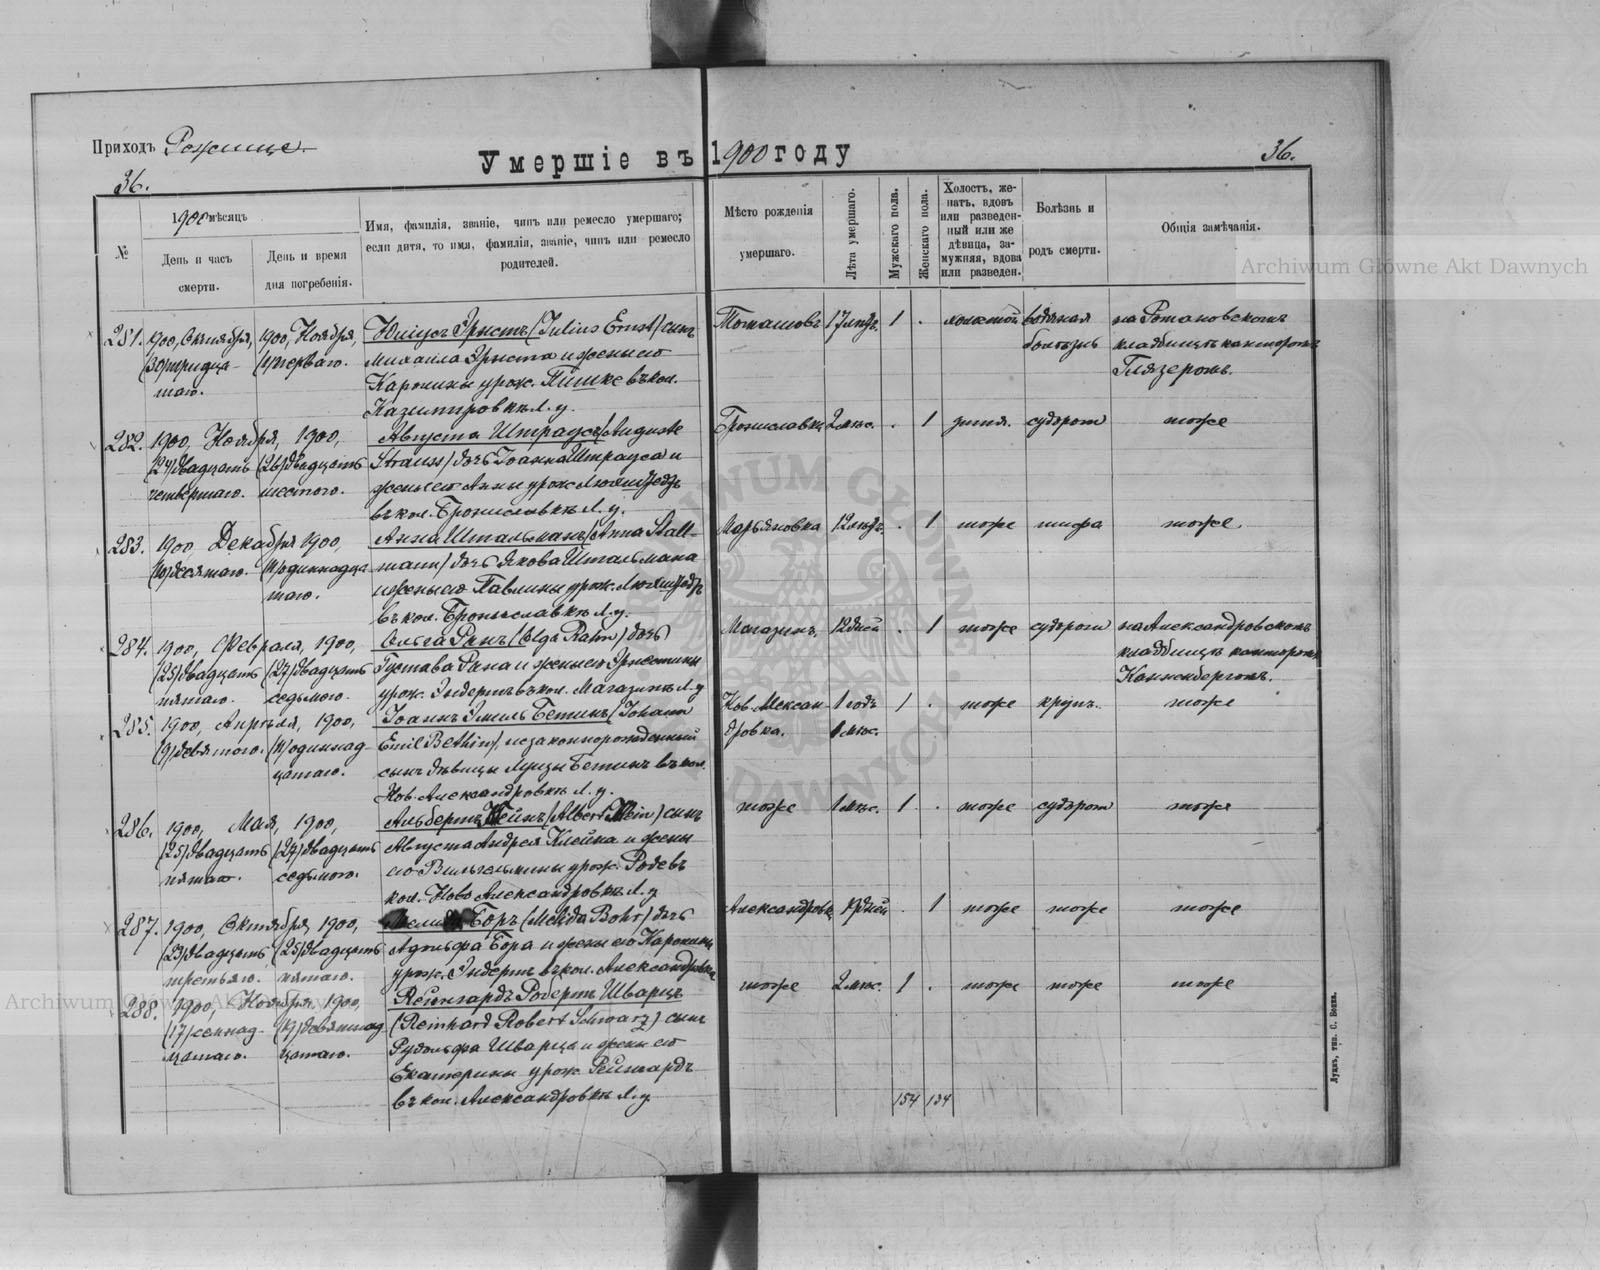 Приходъ Рожище.
Умершіе въ 1900 году
36.
36.
№
1900 мѣсяцъ
День и часъ смерти.
День и время дня погребенія.
Имя, фамилія, званіе, чинъ или ремесло умершаго;
если дитя, то имя, фамилія, званіе, чинъ или ремесло
родителей.
Мѣсто рожденія
умершаго.
Лѣта умершаго.
Мужскаго пола.
Женскаго пола.
Холостъ, же-
натъ, вдовъ
или разведен-
ный или же
дѣвица, за-
мужняя, вдова
или разведен.
Болѣзнь и
родъ смерти.
Общія замѣчанія.
281. 1900, Октября, 1900, Ноября, Юліусъ Эрнстъ (Julius Ernst) сынъ Томашовъ 17 лѣтъ. 1 . холостой водяная на Романовскомъ
(30) тридца- (1) перваго. Михаила Эрнста и жены его болѣзнь кладбищѣ канторомъ
таго. Каролины урож. Пишке въ кол. Глязеромъ.
Казимировкѣ Л. у.
282. 1900, Ноября, 1900, Августа Штраусъ (Auguste Брониславка 2 мѣс. . 1 дитя. судорог тоже
(24) двадцать (26) двадцать Strauss) дочь Іоанна Штрауса и
четвертаго. шестого. жены его Анны урож.
въ кол. Брониславкѣ Л. у.
283. 1900, Декабря 1900, Анна Штальманъ (Anna Stall- Марьяновка 12 лѣтъ. . 1 тоже тифа тоже.
(10) десятаго. (11) одиннадца mann) дочь Якова Штальмана
таго. и жены его Павлины урож.
въ кол. Брониславкѣ Л. у.
284. 1900, Февраля, 1900, Ольга Ранъ (Olga Rahn) дочь Магазинъ. 12 дней . 1 тоже судороги на Александровскомъ
(25) двадцать (27) двадцать Густава Рана и жены его Эрнстины кладбищѣ канторомъ
пятаго. седьмого. урож. Эндертъ въ кол. Магазинѣ Л. у
285. 1900, Апрѣля, 1900, Іоаннъ Эмиль Бетинъ (Johann Нов. Алексан- 1 годъ 1 . тоже крупъ. тоже
(9) девятого. (11) одиннад- Emil Bethin), незаконнорожденный дровка. 1 мѣс.
цатаго. сынъ дѣвицы Луизы Бетинъ въ кол.
Нов. Александровкѣ Л. у.
286. 1900, Мая, 1900, Альбертъ Клейнъ (Albert Klein) сынъ тоже 1 мѣс. 1 . тоже судорог тоже
(25) двадцать (27) двадцать Августа Андрея Клейна и жены
пятаго. седьмого. его Вильгельмины урож. Роде въ
кол. Ново Александровкѣ Л. у
287. 1900, Октября, 1900, Боръ (Melida Bohr) дочь Александровк дней . 1 тоже тоже тоже
(23) двадцать (25) двадцать Адольфа Бора и жены его Каролины
третьяго. пятаго. урож. Эндертъ въ кол. Александровка
288. 1900, Ноября, 1900, Рейнгардъ Робертъ Шварцъ тоже 2 мѣс. 1 . тоже тоже тоже
(17) семнад- (19) девятнад (Reinhard Robert Schwarz) сынъ
цатаго. цатаго. Рудольфа Шварца и жены его
Екатерины урож. Рейнгардъ
въ кол. Александровкѣ Л. у.
154 134
Луцкъ, тип. С. Бокса.
Archiwum Główne Akt Dawnych
Archiwum Główne Akt Dawnych
ARCHIWUM GŁÓWNE AKT DAWNYCH